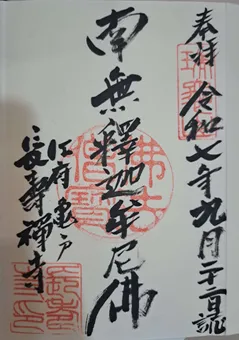 奉拝
令和七年九月二十二日誌
南無釋迦牟尼佛
佛法僧寶
江府亀戸
長壽禅寺